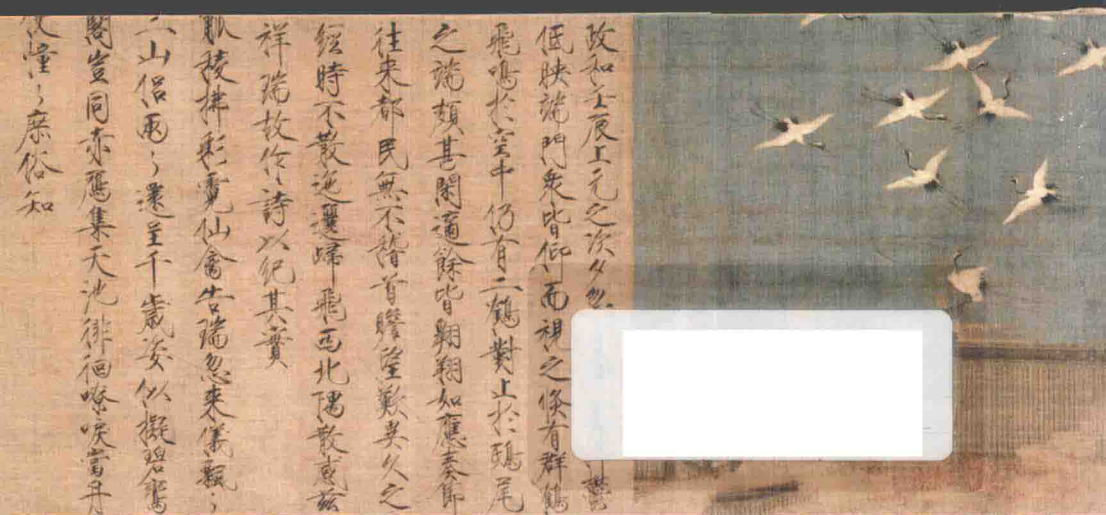 政和壬辰上元之次夕忽鬱
低映端門衆皆仰而視之倏有群鶴
飛鳴於空中仍有二鶴對止於鴟尾
之端頗甚閑適餘皆翱翔如應奏節
往来都民無不稽首瞻望歎異久之
經時不散迤邐歸飛西北隅散感茲
祥瑞故作詩以紀其實
觚稜拂彩霓仙禽告瑞忽来儀飄〻
山侣兩〻還呈千歲姿似擬碧鸞
閣豈同赤鴈集天池徘徊嘹唳當丹
憧〻庶俗知